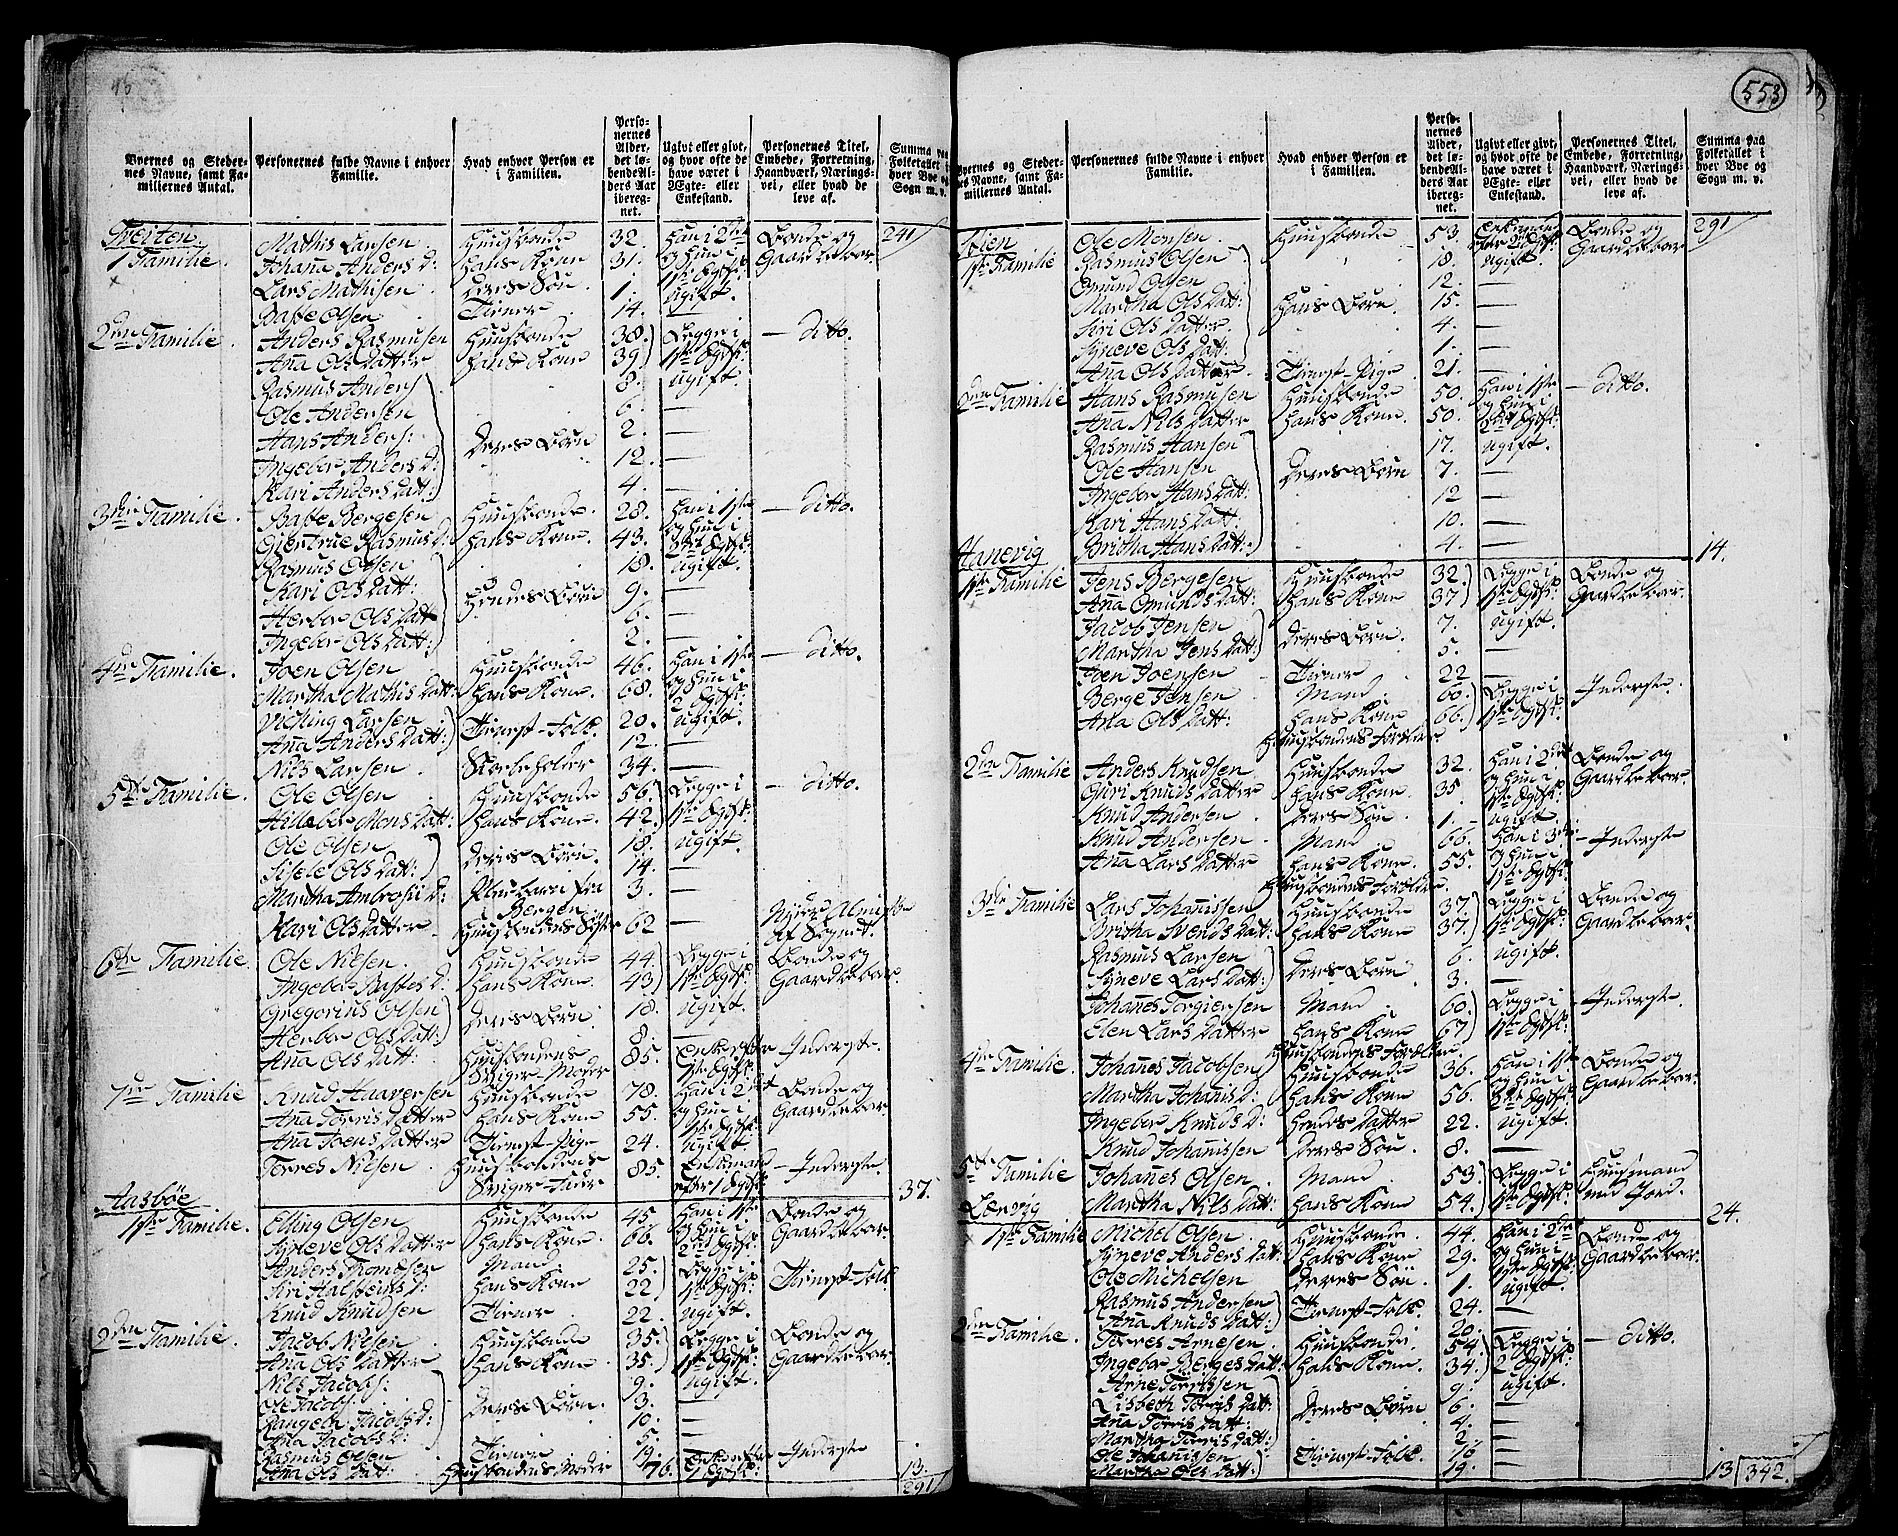 553
Byernes og Steder-
nes Navne, samt Fa-
miliernes Antal.
Personernes fulde Navne i enhver
Familie.
Hvad enhver Person er
i Familien.
Perso-
nernes
Alder,
det lø-
bende Al-
ders Aar
ibereg-
net.
Ugivt eller givt,
og hvor ofte de
have været i
Ægte- eller
Enkestand.
Personernes Titel,
Embede, Forretning,
Haandværk, Nærings-
vei, eller hvad de
leve af.
Summa paa
Folketallet i
hver Bye og
Sogn m. v.
Tveiten 241
1 Familie Mathis Larsen Huusbonde 32. Han i 2det Bonde og
Johana Anders D: Hans Kone 31. og Hun i Gaardbeboer
Lars Mathisen Deres Søn 1. 1ste Egtsk:
Baste Olsen Tiener 14. ugift
2den Familie Anders Rasmusen Huusbonde 38. Begge i Ditto.
Ana Ols Datter Hans Kone 39. 1ste Egtsk:
Rasmus Anders: 8. ugift
Ole Andersen 6. —
Hans Anders: Deres Børn 2. —
Ingebor Anders D: 12. —
Kari Anders Datt: 4. —
3die Familie Baste Bergesen Huusbonde 28. Han i 1ste Ditto.
Giertrue Rasmus D: Hans Kone 43. og Hun i
Rasmus Olsen 18. ugift
Kari Ols Datt: Hendes Børn 9. —
Herbor Ols Datt 6. —
Ingebor Ols Datt: 2. —
4de Familie Joen Olsen Huusbonde 46. Han i 1ste Ditto.
Martha Mathis Datt: Hans Kone 68. og Hun i
2 Egtsk:
Viching Larsen Tienest-Folk 20. ugift
Ana Anders Datt: 12. —
Nils Larsen 34. —
5te Familie Ole Olsen Huusbonde 56. Begge i Ditto.
Hillebor Mons Datt: Hans Kone 42. 1ste Egtsk:
Ole Olsen Deres Børn 18. ugift
Sisele Ols Datt: 14. —
Martha Ambrosii D: Pleiebarn fra 3. —
Bergen
Kari Ols Datter Huusbondens Søster 62 — Nyder Almisse
Af Sognet.
6te Familie Ole Nilsen Huusbonde 44. Begge i Bonde og
Ingebor Bastes D: Hans Kone 43. 1ste Egtsk: Gaardbeboer
Gregorius Olsen Deres Børn 18. ugift
Herbor Ols Datt: 8. —
Ana Ols Datt: Huusbondens 85. Inderste
Sviger-Moder 1ste Egtsk:
7de Familie Knud Haaversen Huusbonde 78. Han i 2det Bonde og
Ana Torris Datter Hans Kone 55. og Hun i Gaardbeboer
1ste Egtsk:
Ana Joens Datter Tienest-Pige 24. ugift
Torres Nilsen Huusbondens 85. Enkemand Inderste.
Sviger-Fader efter 1 Egtsk: 37.
Aasbøe
1ste Familie Elling Olsen Huusbonde 45. Han i 1ste Bonde og
Syneve Ols Datter Hans Kone 66. og Hun i Gaardbeboer
2det Egtsk:
Anders Thomesen Mand 25. Begge i Tienest-Folk
Siri Halsteins D: Hans Kone 22. 1ste Egtsk:
Knud Knudsen Tiener 22. ugift
2den Familie Jacob Nilsen Huusbonde 35. Begge i Bonde og
Ana Ols Datter Hans Kone 35. 1ste Egtsk: Gaardbeboer
Nils Jacobs: 9. ugift
Ole Jacobs: Deres Børn 3. —
Rangela Jacobs D: 10. —
Ana Jacobs D: 5. —
Rasmus Olsen Tiener 19. —
Ana Ols Datt: Huusbondens Moder 76. 1 Egtsk: Inderste 13.
291
Byernes og Steder-
nes Navne, samt Fa-
miliernes Antal.
Personernes fulde Navne i enhver
Familie.
Hvad enhver Person er
i Familien.
Perso-
nernes
Alder,
det lø-
bende Al-
ders Aar
ibereg-
net.
Ugivt eller givt,
og hvor ofte de
have været i
Ægte- eller
Enkestand.
Personernes Titel,
Embede, Forretning,
Haandværk, Nærings-
vei, eller hvad de
leve af.
Summa paa
Folketallet i
hver Bye og
Sogn m. v.
291
1ste Familie Ole Monsen Huusbonde 53. Enkemand Bonde og
Rasmus Olsen 18. ugift Gaardbeboer
Omund Olsen 12. —
Martha Ols Datt: Hans Børn 15. —
Siri Ols Datter 4. —
Syneve Ols Datt: 1. —
Ana Ols Datter Tienest-Pige 21. —
2den Familie Hans Rasmusen Huusbonde 50. Han i 1ste Ditto.
Ana Nils Datter Hans Kone 50. og Hun i
2det Egtsk:
Rasmus Hansen 17. ugift
Ole Hansen Deres Børn 7. —
Ingebor Hans Datt: 12 —
Kari Hans Datt: 10. —
Britha Hans Datt: 4. — 14.
Hanevig
1ste Familie Jens Bergesen Huusbonde 32. Begge i Bonde og
Ana Omunds Datt: Hans Kone 37. 1ste Egtsk: Gaardbeboer
Jacob Jensen Deres Børn 7. ugift
Martha Jens Datt: 5. —
Joen Joensen Tiener 22 —
Berge Jensen Mand 60. Begge i Inderste
Ana Ols Datt: Hans Kone 66. 1ste Egtsk:
Huusbondens Forældre
2den Familie Anders Knudsen Huusbonde 32. Han i 2det Bonde og
Guri Knuds Datter Hans Kone 35 og Hun i Gaardbeboer
1ste Egtsk:
Knud Andersen Deres Søn 1. ugift
Knud Andersen Mand 66. Han i 3die Inderste
Ana Lars Datter Hans Kone 55. og Hun i
Huusbondens Forældre 1ste Egtsk:
3die Familie Lars Johanissen Huusbonde 37. Begge i Bonde og
Britha Svends Datt: Hans Kone 37. 1ste Egtsk: Gaardbeboer
Rasmus Larsen Deres Børn 6. ugift
Syneve Lars Datt: 3. —
Johanes Torgiersen Mand 60. Begge i Inderste
Elen Lars Datter Hans Kone 67. 1ste Egtsk:
Huusbondens Forældre
4de Familie Johanes Jacobsen Huusbonde 36. Han i 1ste Bonde og
Martha Johanis D: Hans Kone 56. og Hun i Gaardbeboer
2det Egtsk:
Ingebor Knuds D: Hendes Datter 22. ugift
Knud Johanissen Deres Søn 8. —
5te Familie Johanes Olsen Mand 53. Begge i Huusmand
Martha Nils Datt: Hans Kone 54. 1ste Egtsk: med Jord. 24.
Lenvig
1ste Familie Michel Olsen Huusbonde 44. Han i 2den Bonde og
Syneve Anders Datt: Hans Kone 29. og Hun i Gaardbeboer
Ole Michelsen Deres Søn 1. ugift
Rasmus Andersen Tienest-Folk 24. —
Ana Knuds Datt: 20. —
2den Familie Torres Arnesen Huusbonde 54. Begge i Ditto.
Ingebor Berges Datt: Hans Kone 34. 2 Egtsk:
Arne Torrissen 9. ugift
Lisbeth Torris Datt: Deres Børn 6. —
Ana Torris Datt: 4. —
Martha Torris Datt: 2. —
Ole Johanissen Tienest-Folk 16 —
Martha Ols Datt: 19. — 13 342.